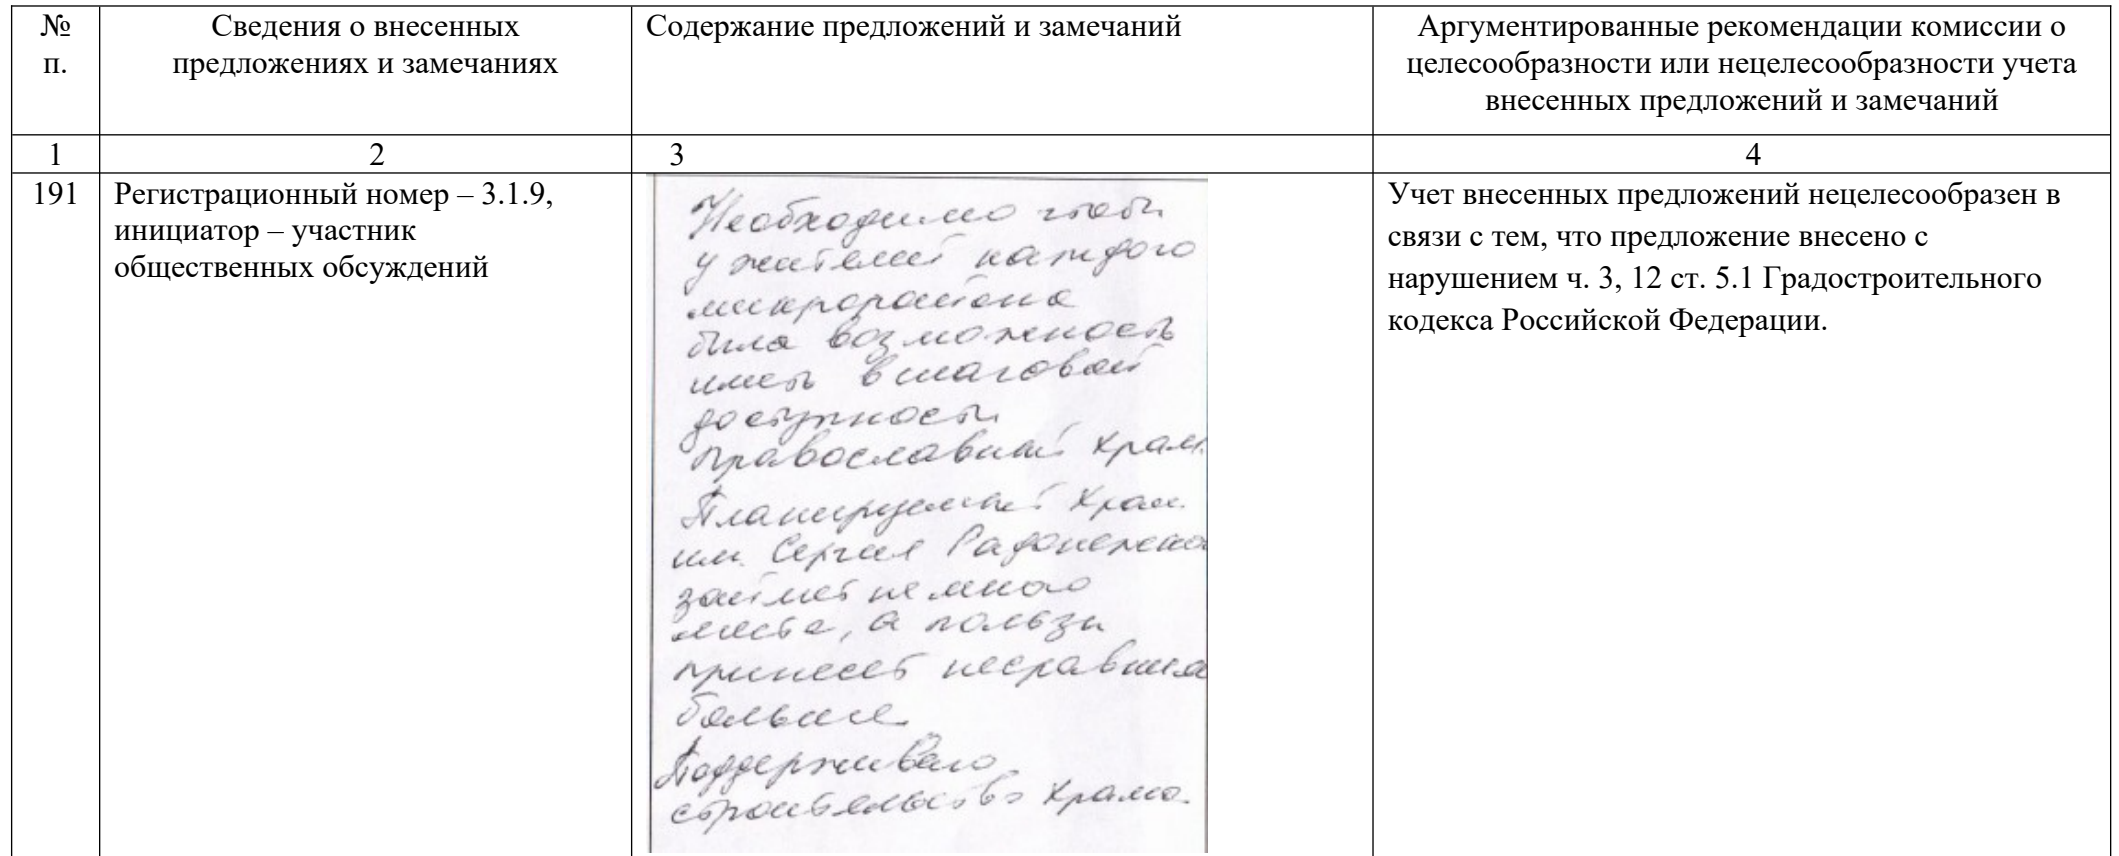 № п.
Сведения о внесенных предложениях и замечаниях
Содержание предложений и замечаний
Аргументированные рекомендации комиссии о целесообразности или нецелесообразности учета внесенных предложений и замечаний
1
2
3
4
191
Регистрационный номер – 3.1.9,
инициатор – участник
общественных обсуждений
Необходимо чтобы
у жителей каждого
микрорайона
была возможность
иметь в шаговой
доступности
православный храм.
Планируемый храм
им. Сергия Радонежско
займет не много
места, а пользы
принесет несравнимо
больше
Поддерживаю
строительство храма.
Учет внесенных предложений нецелесообразен в
связи с тем, что предложение внесено с
нарушением ч. 3, 12 ст. 5.1 Градостроительного
кодекса Российской Федерации.